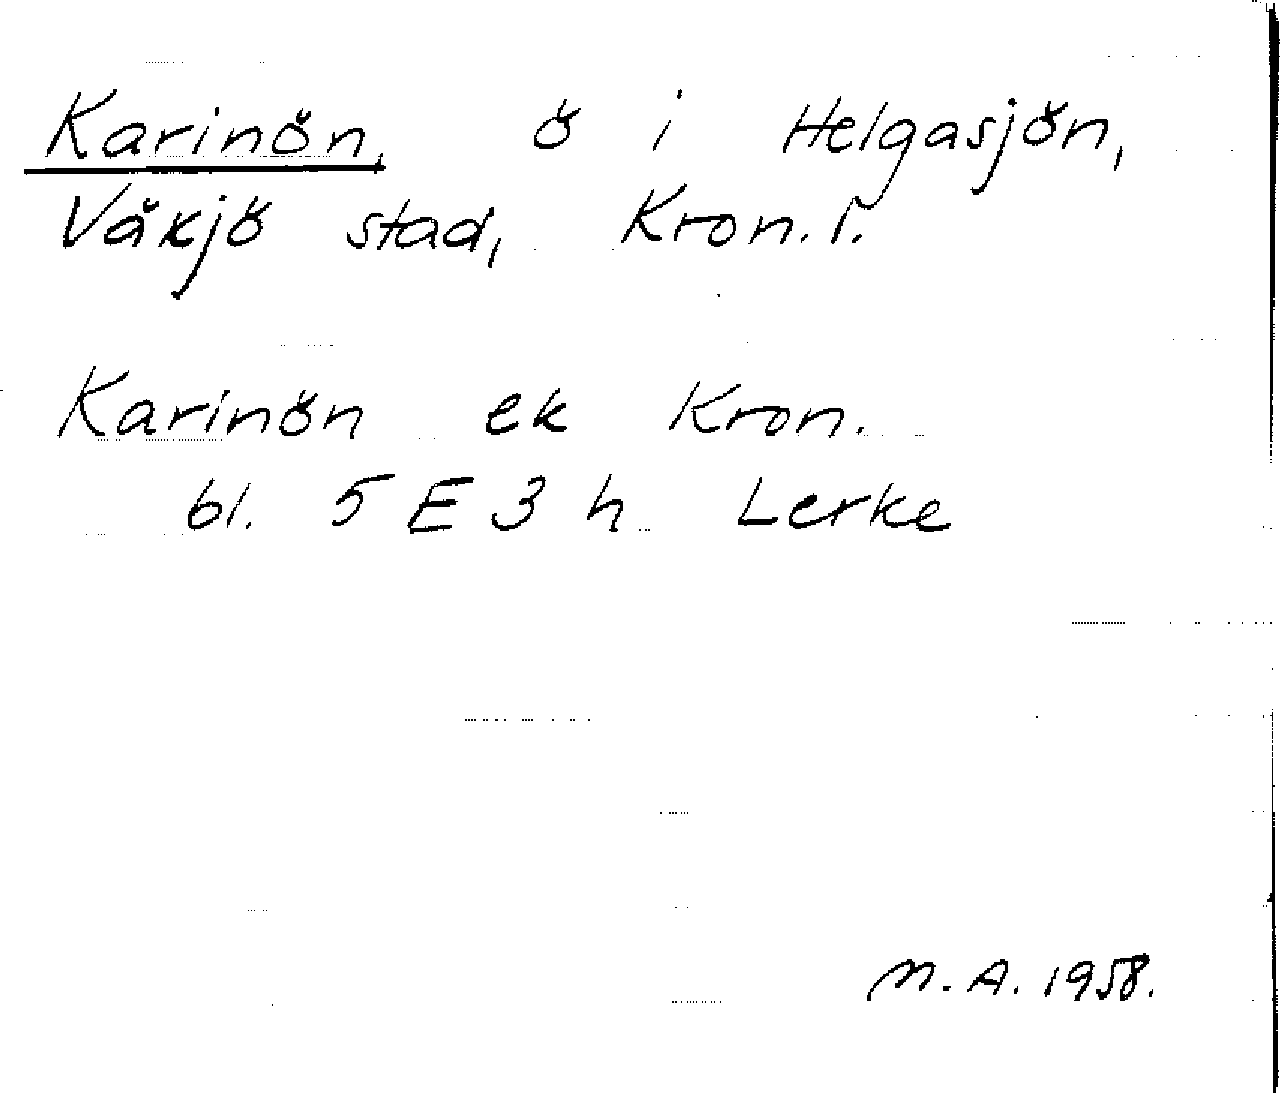 Karinön, ö i Helgasjön,
Växjö stad, Kron. l.
Karinön ek Kron.
bl. 5 E 3 h Lerke
M. A. 1958.